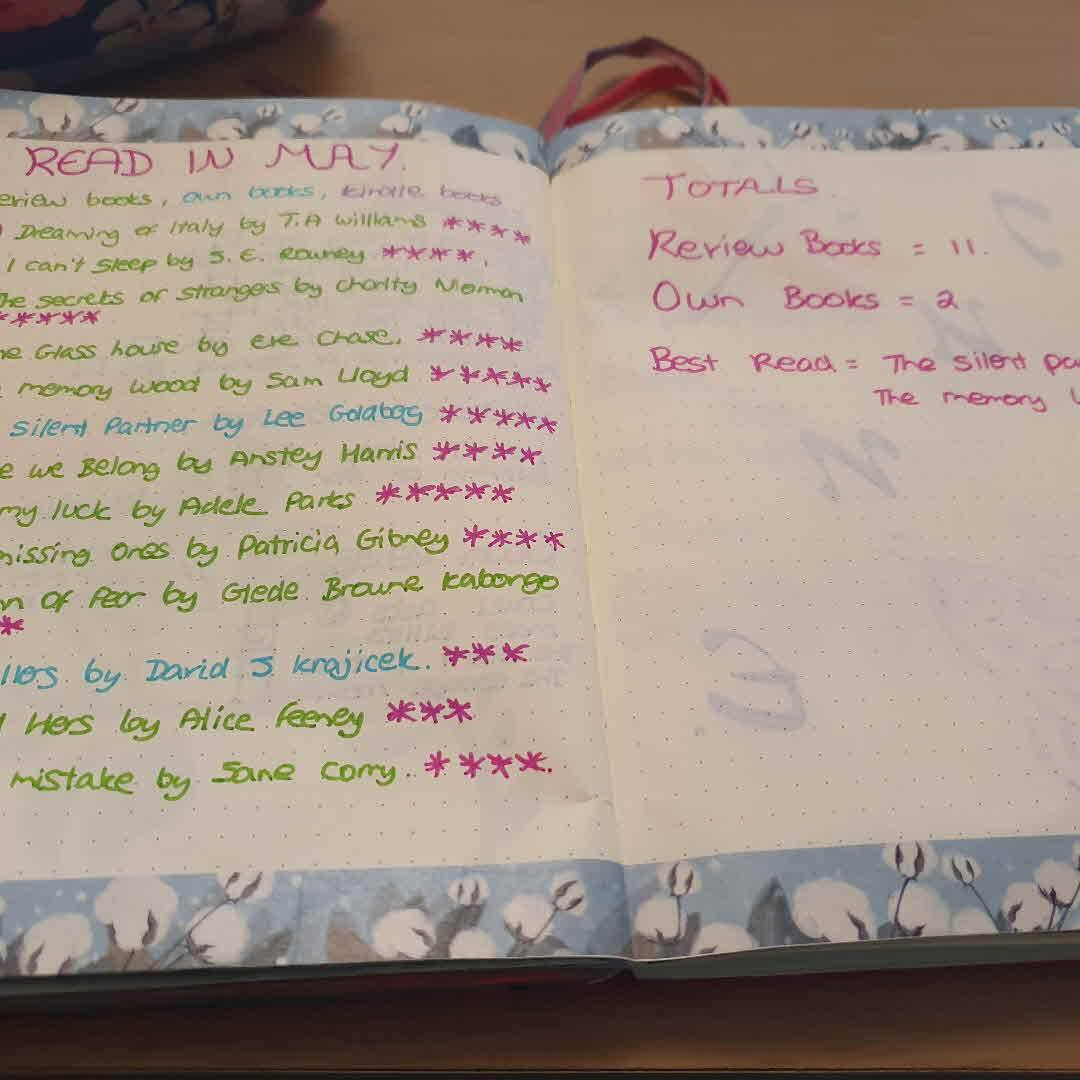 READ IN MAY.
eview books, own books, kindle books
Dreaming of Italy by T.A Williams ****
I can't sleep by J. E. Rowney ****.
The secrets of strangers by Charity Norman
*****
he Glass house by Eve Chase. ****
memory wood by Sam Lloyd *****
Silent Partner by Lee Goldberg *****
e we Belong by Anstey Harris ****
my luck by Adele Parks *****
missing ones by Patricia Gibney ****
n of fear by Glede Browne Kabongo
*
llers by David J Krajicek. ***
Hers by Alice Feeney ***
mistake by Jane Corry. ****.
TOTALS.
Review Books = 11.
Own Books = 2
Best Read = The Silent Pa
The memory